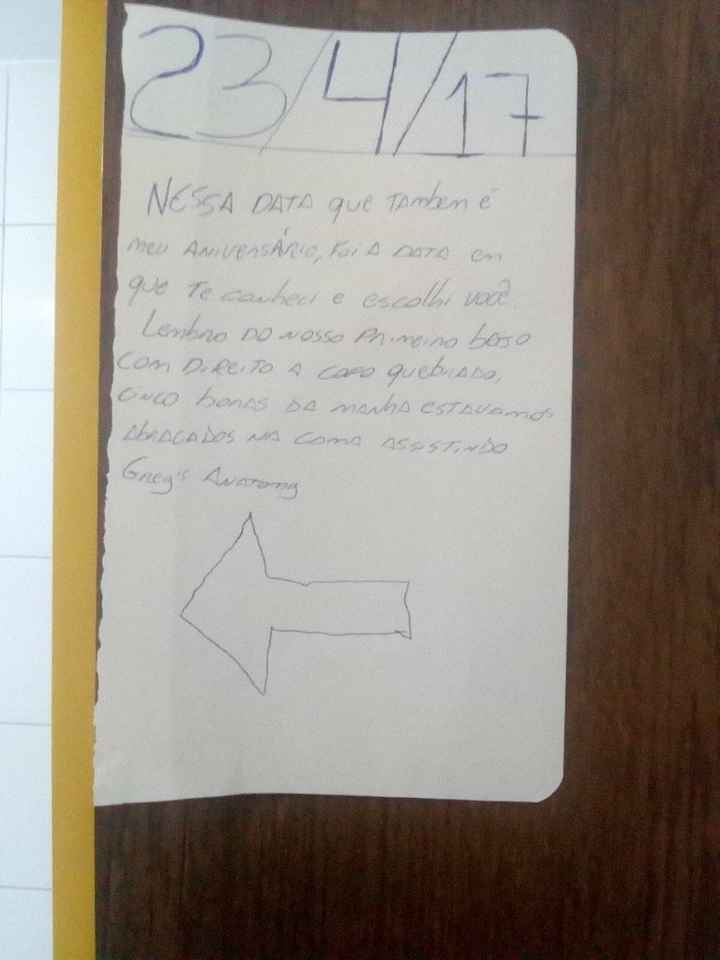 23/4/17
NESSA DATA que também é
meu ANIVERSÁRIO, foi A DATA em
que Te conheci e escolhi você.
Lembro DO nosso Primeiro beijo
com Direito a copo quebrado,
cinco horas da manhã estavamos
abraçados na cama assistindo
Greg's Anatomy